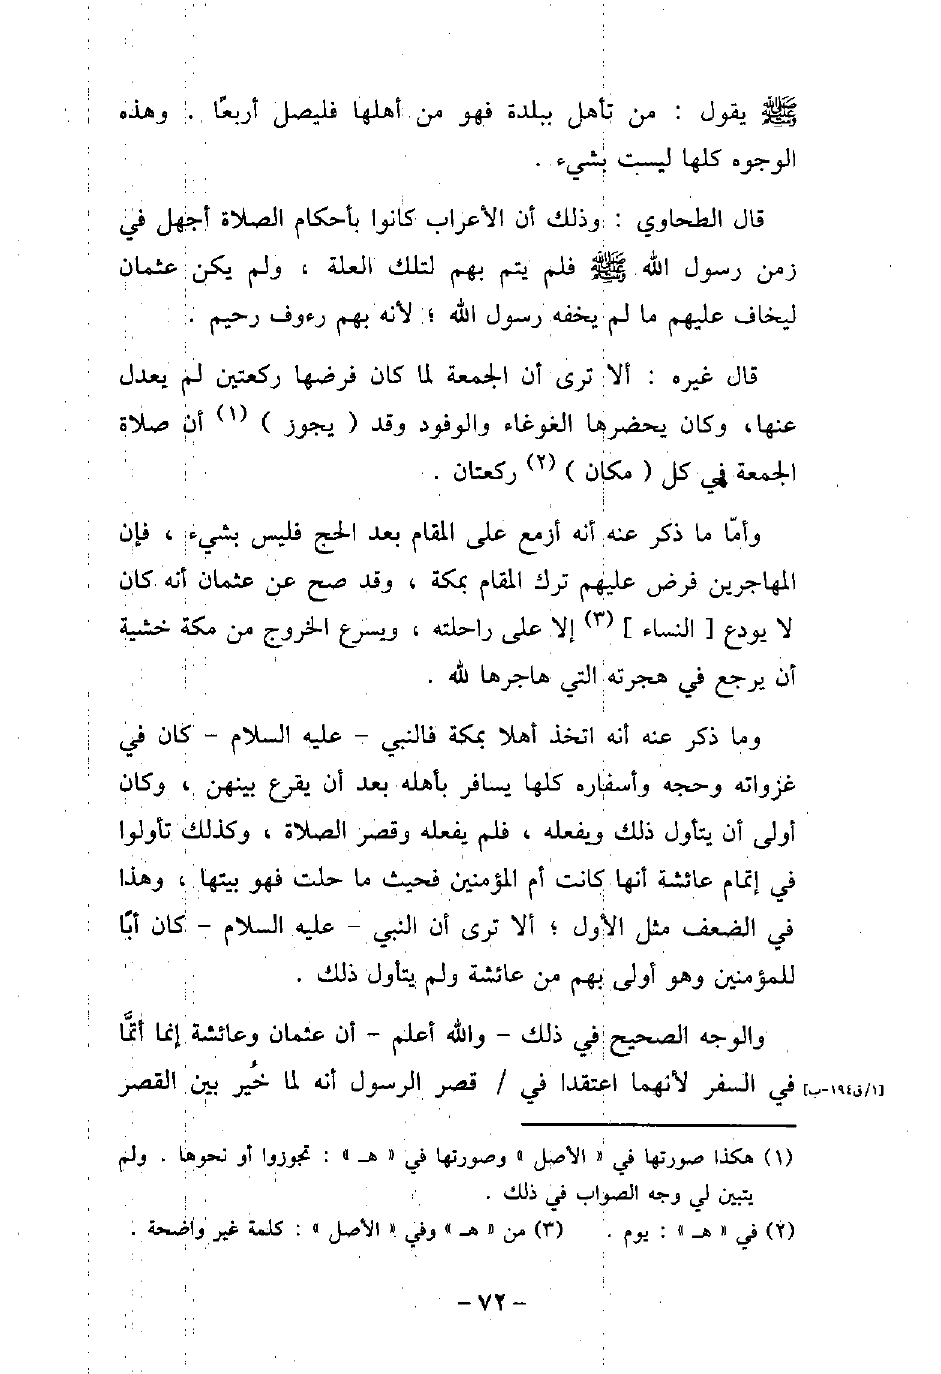 ﷺ يقول : من تأهل ببلدة فهو من أهلها فليصل أربعًا . وهذه
الوجوه كلها ليست بشيء .
قال الطحاوي : وذلك أن الأعراب كانوا بأحكام الصلاة أجهل في
زمن رسول الله ﷺ فلم يتم بهم لتلك العلة ، ولم يكن عثمان
ليخاف عليهم ما لم يخفه رسول الله ؛ لأنه بهم رءوف رحيم .
قال غيره : ألا ترى أن الجمعة لما كان فرضها ركعتين لم يعدل
عنها، وكان يحضرها الغوغاء والوفود وقد ( يجوز ) (١) أن صلاة
الجمعة في كل ( مكان ) (٢) ركعتان .
وأمّا ما ذكر عنه أنه أزمع على المقام بعد الحج فليس بشيء ، فإن
المهاجرين فرض عليهم ترك المقام بمكة ، وقد صح عن عثمان أنه كان
لا يودع [ النساء ] (٣) إلا على راحلته ، ويسرع الخروج من مكة خشية
أن يرجع في هجرته التي هاجرها لله .
وما ذكر عنه أنه اتخذ أهلا بمكة فالنبي - عليه السلام - كان في
غزواته وحجه وأسفاره كلها يسافر بأهله بعد أن يقرع بينهن ، وكان
أولى أن يتأول ذلك ويفعله ، فلم يفعله وقصر الصلاة ، وكذلك تأولوا
في إتمام عائشة أنها كانت أم المؤمنين فحيث ما حلت فهو بيتها ، وهذا
في الضعف مثل الأول ؛ ألا ترى أن النبي - عليه السلام - كان أبًا
للمؤمنين وهو أولى بهم من عائشة ولم يتأول ذلك .
والوجه الصحيح في ذلك - والله أعلم - أن عثمان وعائشة إنما أتمَّا
[١/ق١٩٤-ب] في السفر لأنهما اعتقدا في / قصر الرسول أنه لما خُير بين القصر
(١) هكذا صورتها في « الأصل » وصورتها في « هـ » : تجوزوا أو نحوها . ولم
يتبين لي وجه الصواب في ذلك .
(٢) في « هـ » : يوم . (٣) من « هـ » وفي « الأصل » : كلمة غير واضحة .
- ٧٢ -